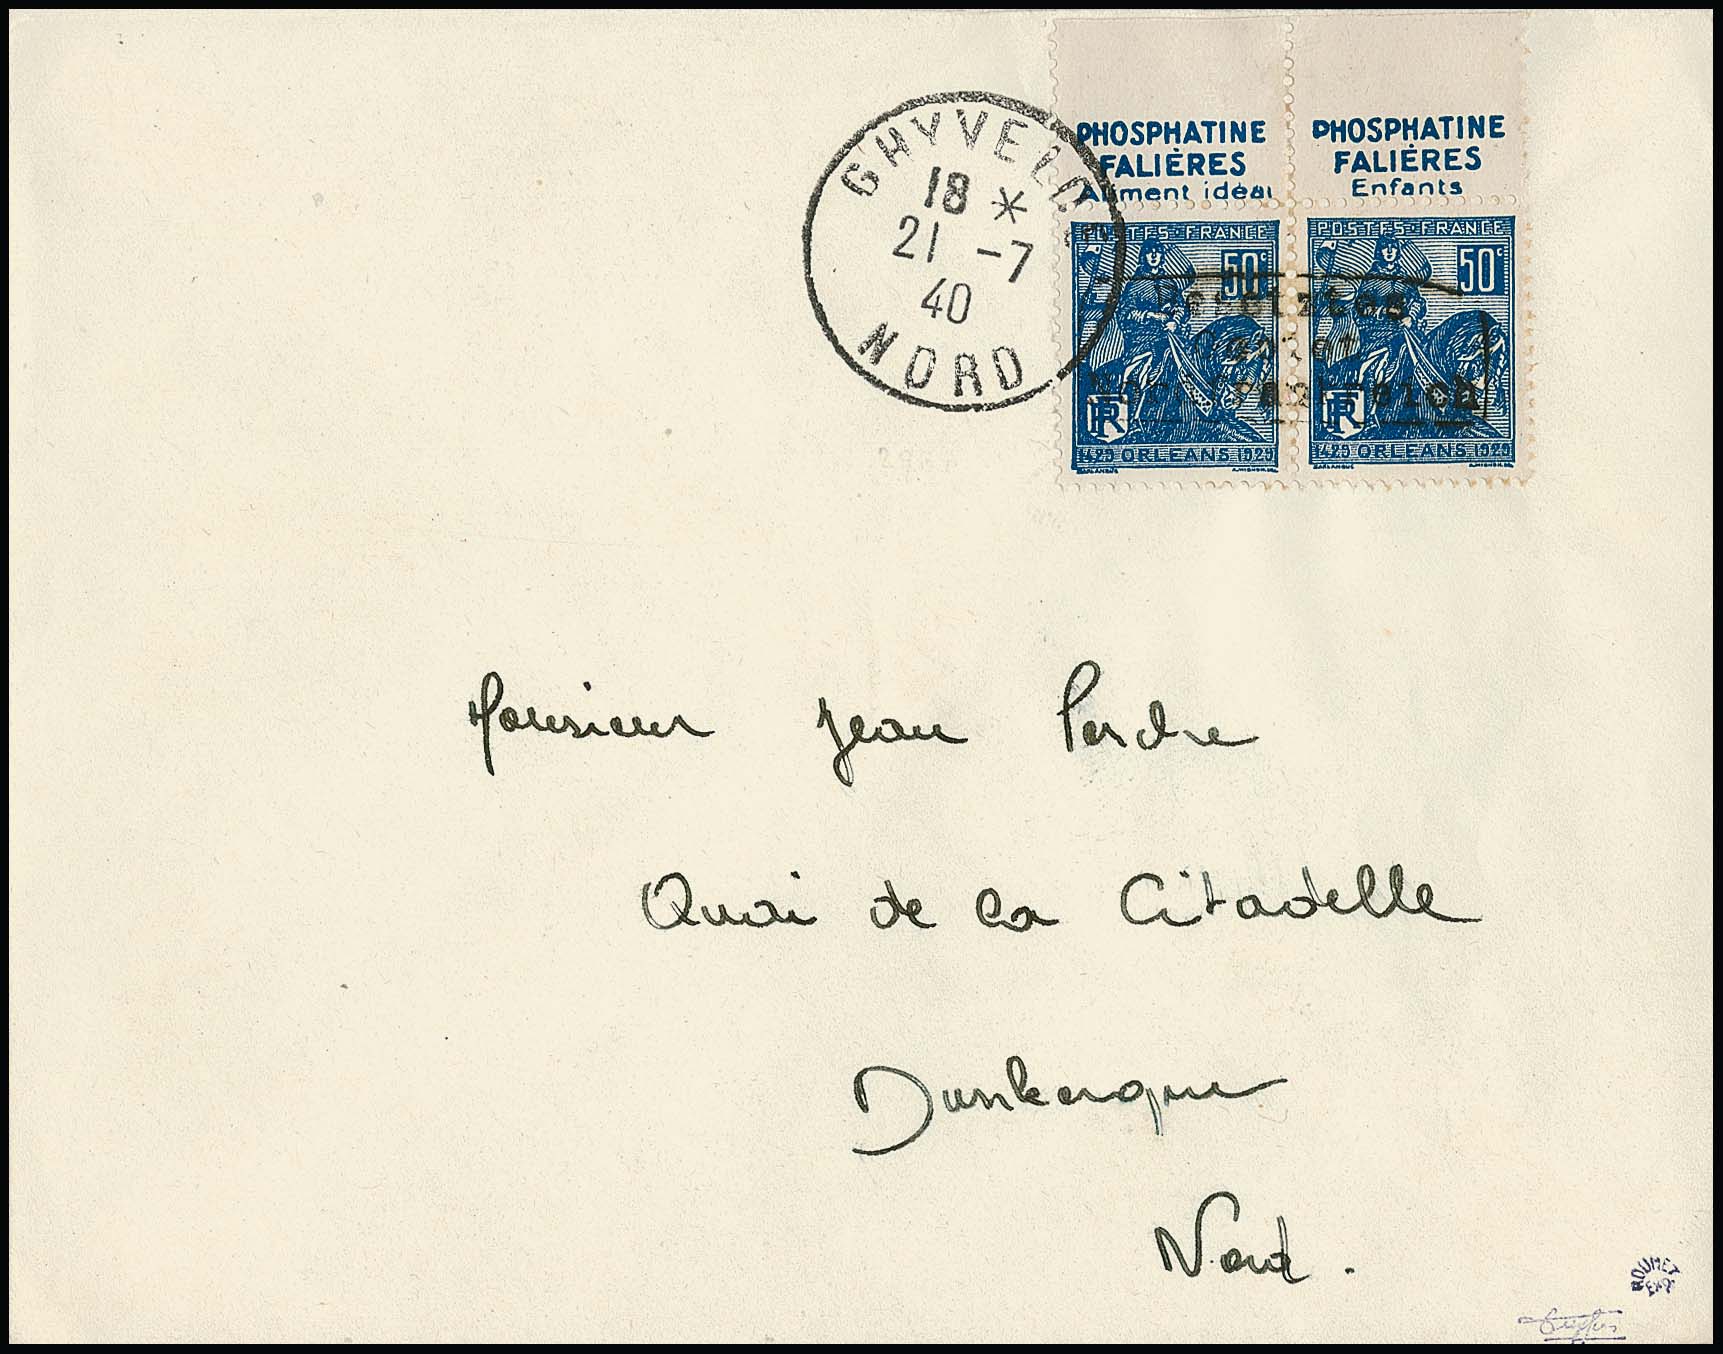 PHOSPHATINE
FALIÈRES
Aliment idéal
PHOSPHATINE
FALIÈRES
Enfants
GHYVELD
18 *
21 -7
40
NORD
POSTES-FRANCE
50c
RF
1429 ORLEANS 1929
POSTES-FRANCE
50c
RF
1429 ORLEANS 1929
Besetztes
Gebiet
Nordfrankreich
Monsieur Jean Perdre
Quai de la Citadelle
Dunkerque
Nord.
ROUMET